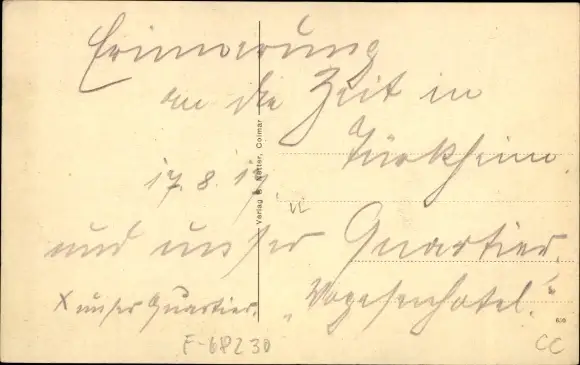 Erinnerung
an die Zeit in
Türkheim.
17. 8. 17
und unser Quartier
"Vogesenhotel."
x unser Quartier.
Verlag Netter, Colmar
F-68230
CC